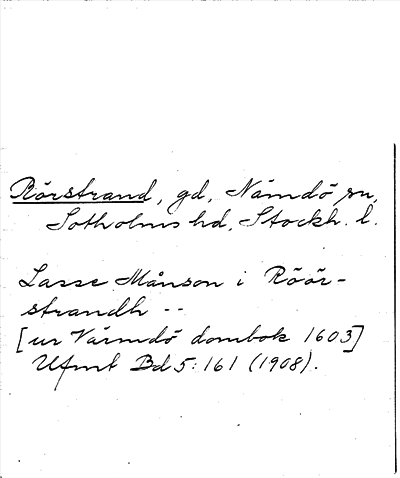 Rörstrand, gd, Nämdö sn,
Sotholms hd, Stockh. l.
Lasse Månson i Röör-
strandh --
[ur Värmdö dombok 1603]
Ufmt Bd 5:161 (1908).